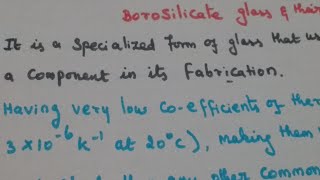 Borosilicate glass & their
It is a specialized form of glass that us
a component in its Fabrication.
Having very low co-efficients of ther
3 × 10⁻⁶ k⁻¹ at 20°c), making them
any other common